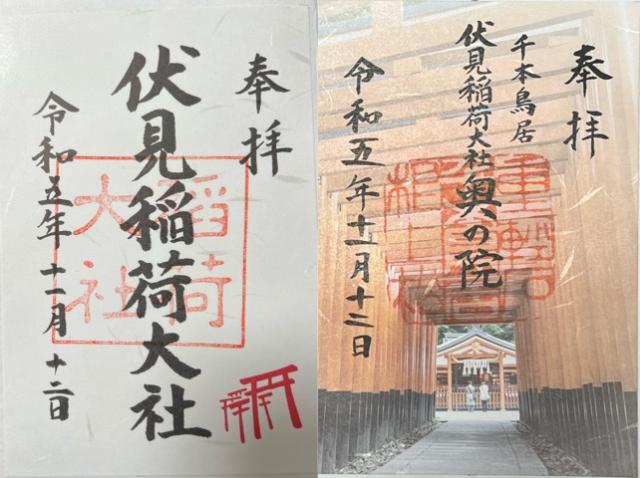 奉拝
伏見稲荷大社
令和五年 十一月 十二日
稲荷
大社
奉拝
千本鳥居
伏見稲荷大社 奥の院
令和五年十一月十二日